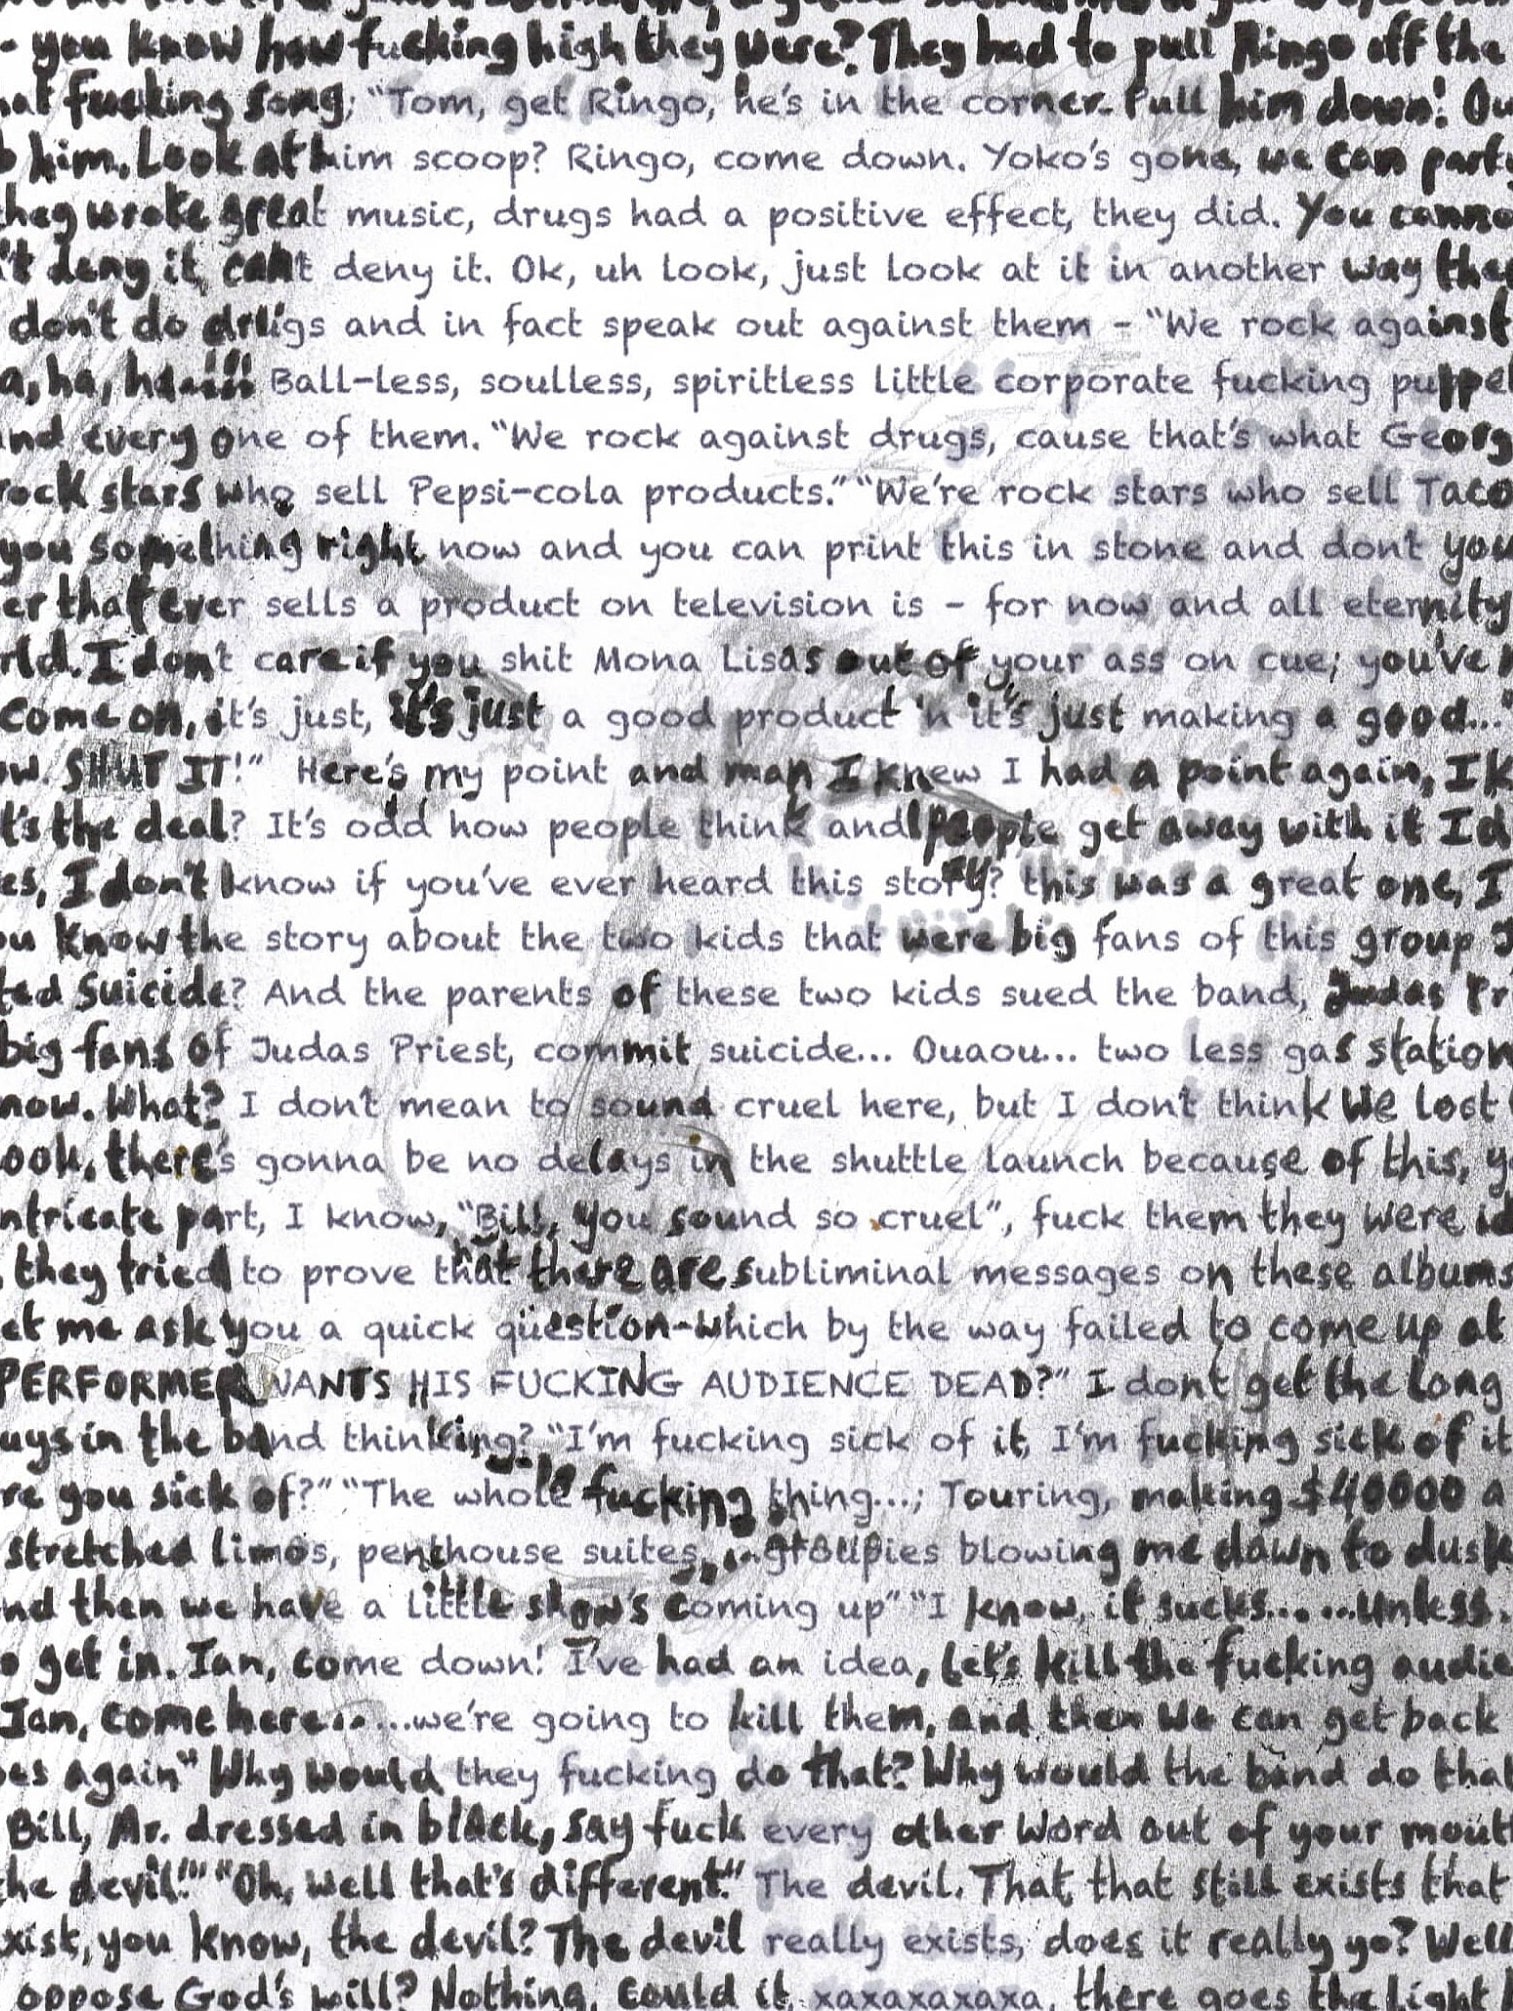 - you know how fucking high they were? They had to pull Ringo off the
hat fucking song; "Tom, get Ringo, he's in the corner. Pull him down! Ou
o him. Look at him scoop? Ringo, come down. Yoko's gone, we can party
they wrote great music, drugs had a positive effect, they did. You canno
't deny it, can't deny it. Ok, uh look, just look at it in another way the
don't do drugs and in fact speak out against them - "We rock against
a, ha, ha Ball-less, soulless, spiritless little corporate fucking puppet
and every one of them. "We rock against drugs, cause that's what Georg
rock stars who sell Pepsi-cola products." "We're rock stars who sell Taco
you something right now and you can print this in stone and don't you
er that ever sells a product on television is - for now and all eternity
rld. I don't care if you shit Mona Lisas out of your ass on cue; you've
Come on, it's just, it's just a good product 'n it's just making a good..."
ow. SHUT IT!" Here's my point and man I knew I had a point again, I k
t's the deal? It's odd how people think and people get away with it I d
es, I don't know if you've ever heard this story? this was a great one, I
ou know the story about the two kids that were big fans of this group J
ted Suicide? And the parents of these two kids sued the band, Judas Pr
big fans of Judas Priest, commit suicide... Ouaou... two less gas station
now. What? I don't mean to sound cruel here, but I don't think we lost
ook, there's gonna be no delays in the shuttle launch because of this, y
ntricate part, I know, "Bill, you sound so cruel", fuck them they were id
, they tried to prove that there are subliminal messages on these albums
et me ask you a quick question-which by the way failed to come up at
PERFORMER WANTS HIS FUCKING AUDIENCE DEAD?" I don't get the long
uys in the band thinking? "I'm fucking sick of it, I'm fucking sick of it
re you sick of?" "The whole fucking thing...; Touring, making $40000 a
stretched limos, penthouse suites, groupies blowing me dawn to dusk
nd then we have a little show's coming up" "I know, it sucks......Unless.
o get in. Ian, come down! I've had an idea, Let's kill the fucking audie
Ian, come here......we're going to kill them, and then we can get back
oes again" Why would they fucking do that? Why would the band do that
Bill, Mr. dressed in black, say fuck every other word out of your mout
the devil!" "Oh, well that's different." The devil. That, that still exists that
xist, you know, the devil? The devil really exists, does it really yo? Well
oppose God's will? Nothing, could it, xaxaxaxaxa, there goes the light